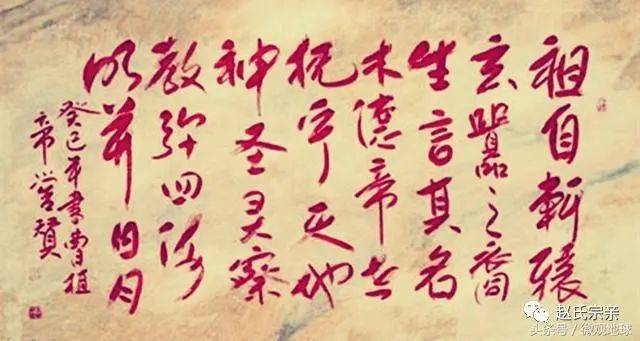 祖自軒轅
玄嚣之裔
生言其名
木德帝世
抚宁天地
神圣灵察
教弥四海
明并日月
癸巳年書曹植
帝喾赞
赵氏宗亲
头条号/微观地球